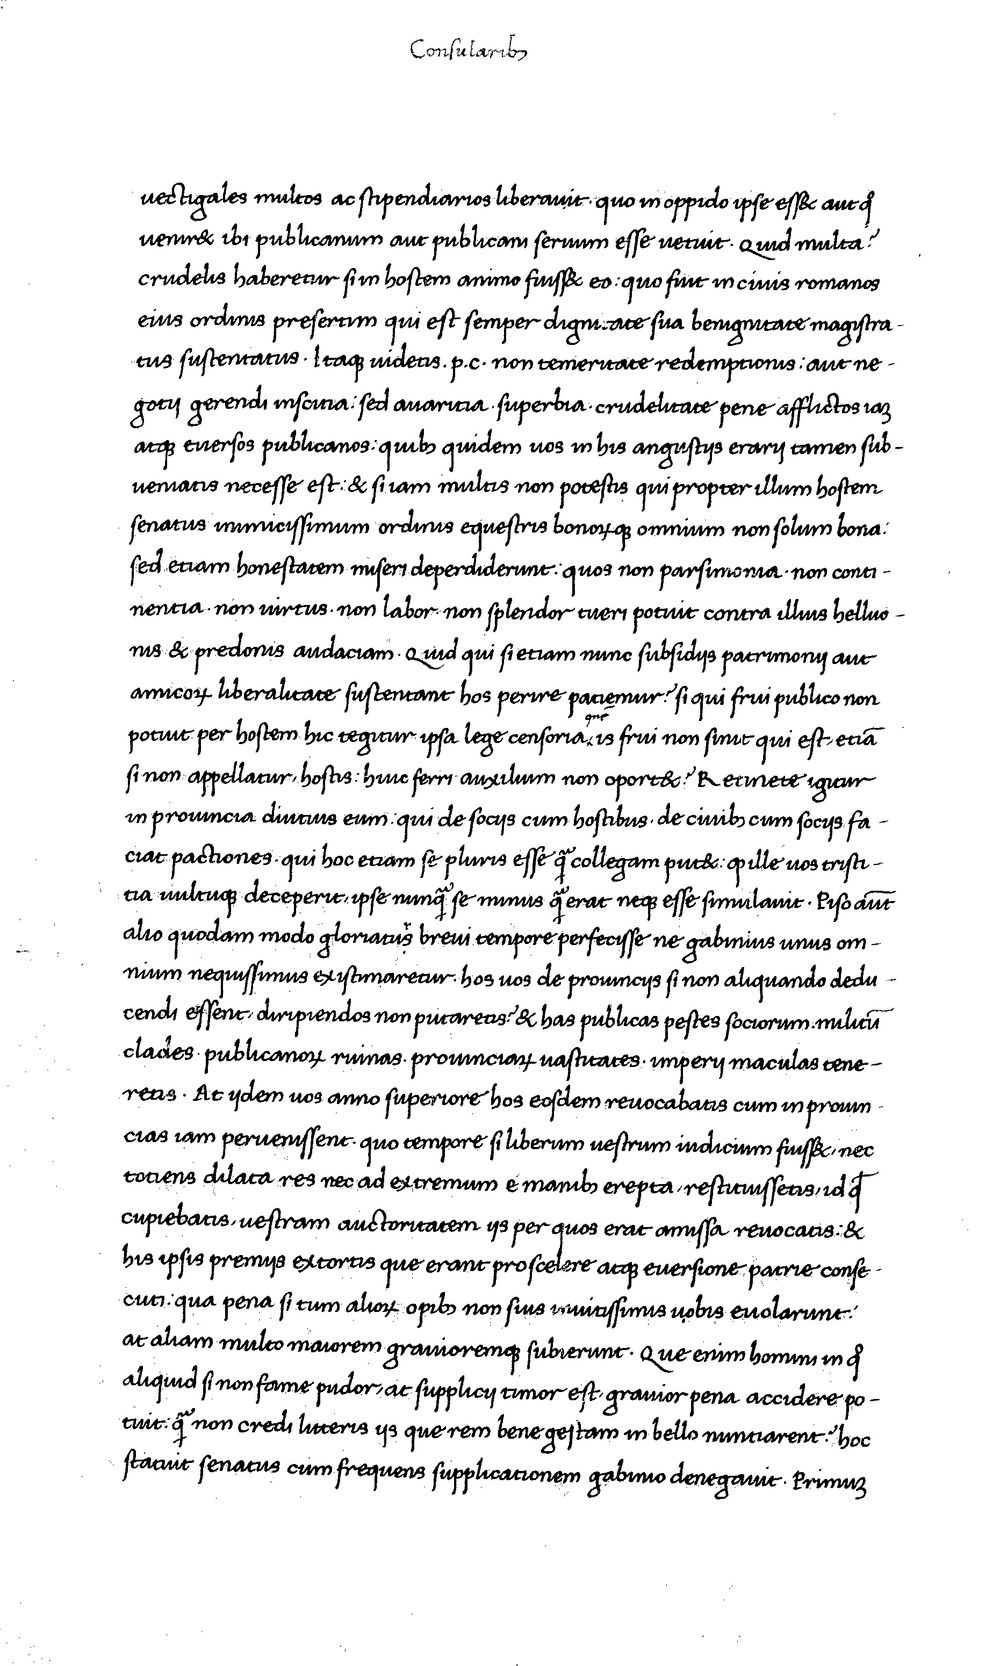 Consularibꝫ
uectigales multos ac stipendiarios liberauit · quo in oppido ipse ess& aut q̊
uenir& ibi publicanum aut publicani seruum esse uetuit · Quid multa?
crudelis haberetur si in hostem animo fuiss& eo: quo fuit in ciuis romanos
eius ordinis presertim qui est semper dignitate sua benignitate magistra-
tus sustentatus · Itaqꝫ uidetis . p.c. non temeritate redemptionis: aut ne-
gotij gerendi inscitia: sed auaritia · superbia · crudelitate pene afflictos iaꝫ
atqꝫ euersos publicanos: quibꝫ quidem uos in his angustijs erarij tamen sub-
ueniatis necesse est: & si iam multis non potestis qui propter illum hostem
senatus inimicissimum ordinis equestris bonoꝝqꝫ omnium non solum bona:
sed etiam honestatem miseri deperdiderunt: quos non parsimonia · non conti-
nentia · non uirtus · non labor · non splendor tueri potuit contra illius helluo-
nis & predonis audaciam · Quid qui si etiam nunc subsidijs patrimonij aut
amicoꝝ liberalitate sustentant hos perire patiemur? si qui frui publico non
potuit per hostem hic tegitur ipsa lege censoria, is frui non sinit qui est etiā
si non appellatur, hostis: huic ferri auxilium non oport&? Retinete igitur
in prouincia diutius eum: qui de socijs cum hostibus · de ciuibꝫ cum socijs fa-
ciat pactiones · qui hoc etiam se pluris esse q̃ collegam put&: ꝙ ille uos tristi-
tia uultuqꝫ deceperit, ipse nunq̃ se minus q̃ erat neqꝫ esse simulauit · Piso aūt
alio quodam modo gloriatus brevi tempore perfecisse ne gabinius unus om-
nium nequissimus existimaretur · hos uos de prouincijs si non aliquando dedu-
cendi essent, diripiendos non putaretis? & has publicas pestes sociorum · militū
clades · publicanoꝝ ruinas · prouinciaꝝ uastitates · imperij maculas tene-
retis · At ijdem uos anno superiore hos eosdem reuocabatis cum in prouin-
cias iam peruenissent · quo tempore si liberum uestrum iudicium fuiss&, nec
totiens dilata res nec ad extremum e manibꝫ erepta, restituissetis, id q̊
cupiebatis, uestram auctoritatem ijs per quos erat amissa reuocatis: &
his ipsis premijs extortis que erant pro scelere atqꝫ euersione patrie conse-
cuti: qua pena si tum alioꝝ opibꝫ non suis inuitissimis uobis euolarunt:
at aliam multo maiorem grauioremqꝫ subierunt · Que enim homini in q̊
aliquid si non fame pudor, at supplicij timor est, grauior pena accidere po-
tuit: q̃ non credi litteris ijs que rem bene gestam in bello nuntiarent? hoc
statuit senatus cum frequens supplicationem gabinio denegauit · Primuꝫ